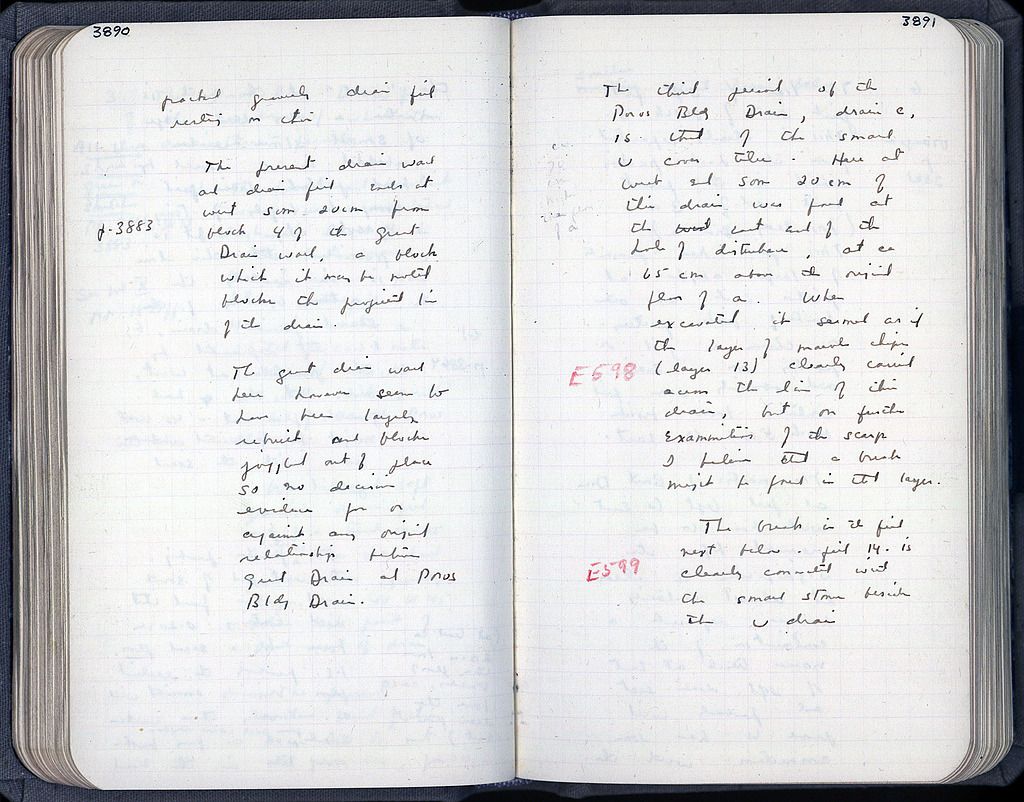 3890
packed gravelly drain fill
resting on this
The present drain wall
and drain fill ends at
west some 20cm from
p. 3883
block 4 of the Great
Drain wall, a block
which it may be noted
blocks the projected line
of the drain.
The great drain wall
here however seems to
have been largely
rebuilt and blocks
joggled out of place
so no decisive
evidence for or
against any original
relationship between
Great Drain and Poros
Bldg Drain.
3891
The third period of the
Poros Bldg Drain, drain c,
is that of the small
U cover tiles. Here at
west end some 20 cm of
this drain was found at
the east end of the
hole of disturbance, at ca
65 cm above the original
floor of a. When
excavated it seemed as if
the layer of marble chips
E598
(layer 13) clearly carried
across the line of this
drain, but on further
examination of the scarp
I believe that a break
might be found in that layer.
The break in the fill
next below. fill 14. is
E599
clearly connected with
the small stones beside
the U drain